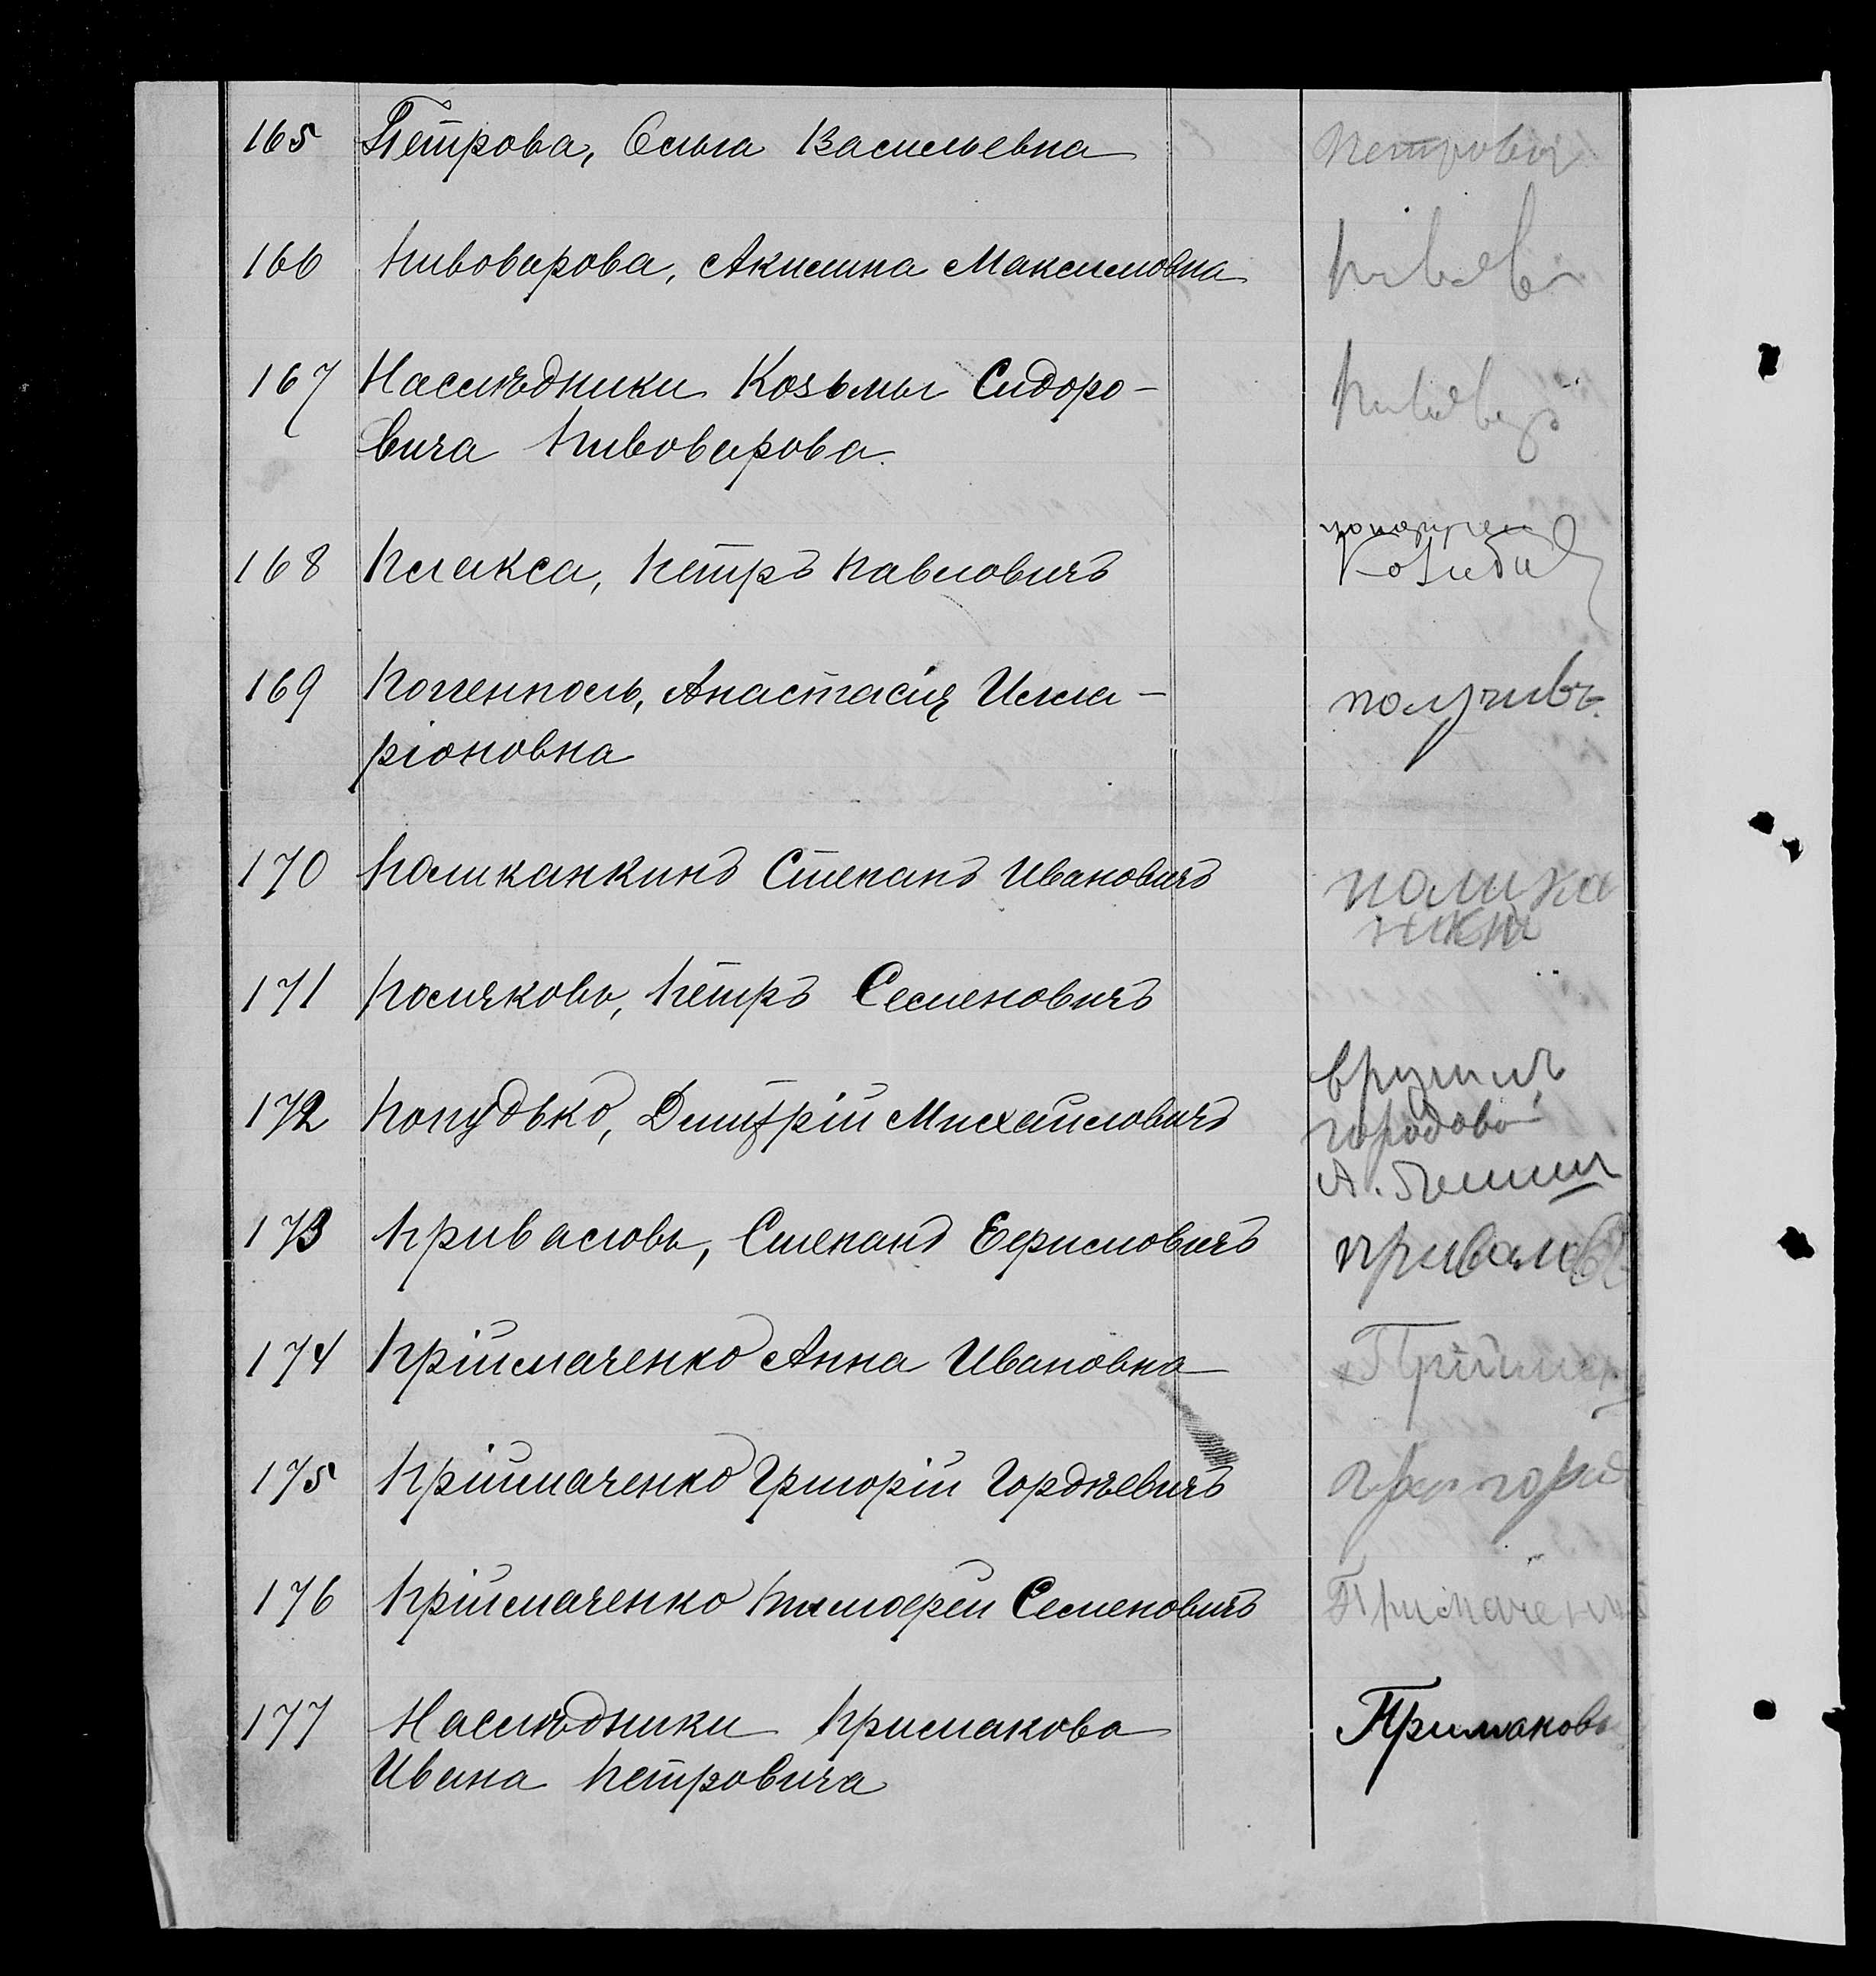 165 Петрова, Ольга Васильевна Петрова
166 Пивоварова, Акилина Максимовна
167 Наслѣдники Козьмы Сидоро-
вича Пивоварова.
168 Плакса, Петръ Павловичъ
169 Поггенполь, Анастасія Илла-
ріоновна получивъ
170 Полижанкинъ Степанъ Ивановичъ
171 Поляковъ, Петръ Семеновичъ
172 Попудько, Дмитрій Михайловичъ вручилъ
городовой
173 Приваловъ, Степанъ Ефимовичъ приваловъ
174 Пріймаченко Анна Ивановна
175 Пріймаченко Григорій Гордѣевичъ
176 Пріймаченко Тимофей Семеновичъ Примаченко
177 Наслѣдники Примакова Примаковъ
Ивана Петровича